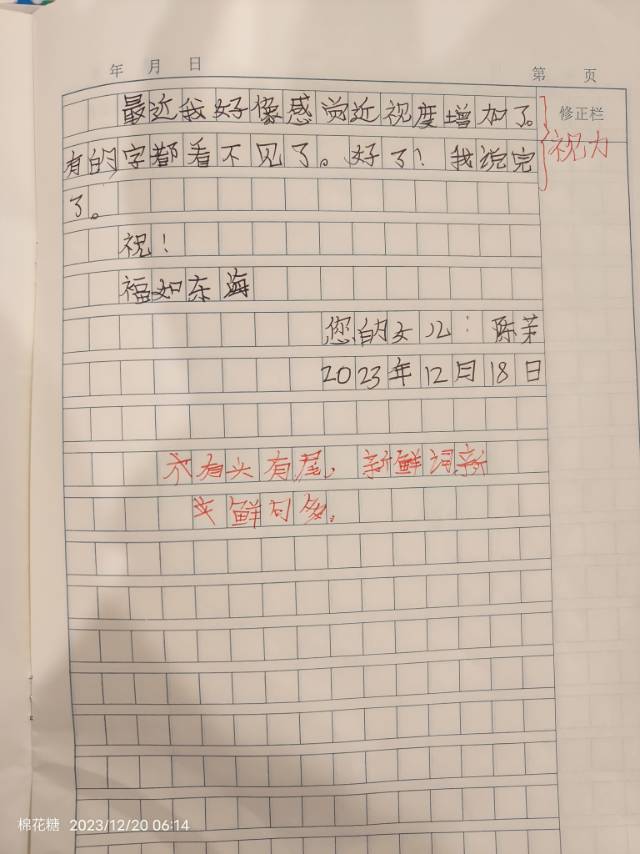 年 月 日
第 页
最近我好像感觉近视度增加了。
修正栏
有的字都看不见了。好了！我说完
视力
了。
祝！
福如东海
您的女儿：陈茉
2023年12月18日
有头有尾，新鲜词新
鲜句多。
棉花糖 2023/12/20 06:14